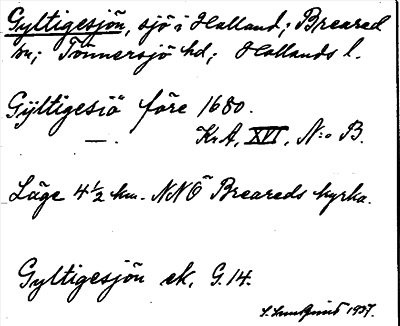 Gyltigesjön, sjö i Halland; Breared
sn; Tönnersjö hd; Hallands l.
Gÿltigesiö före 1680.
— . KrA, XVI, N:o B.
Läge 4 1/2 km. NNO Breareds kyrka.
Gyltigesjön ek. G. 14.
1937.